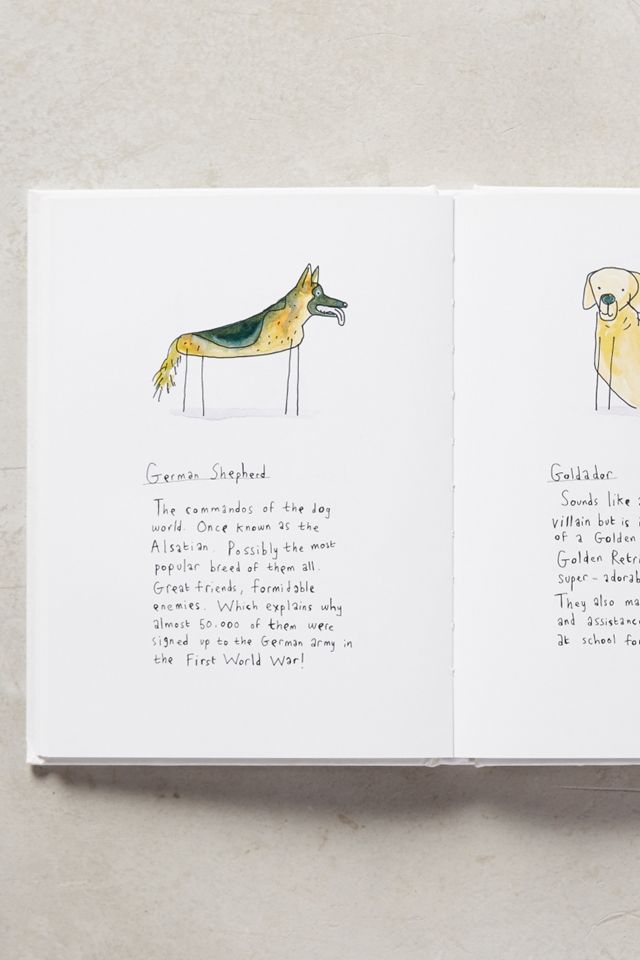 German Shepherd
The commandos of the dog
world. Once known as the
Alsatian. Possibly the most
popular breed of them all.
Great friends, formidable
enemies. Which explains why
almost 50.000 of them were
signed up to the German army in
the First World War!
Goldador
Sounds like
villain but is
of a Golden
Golden
super-
They also
and
at school